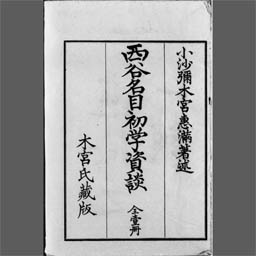 小沙彌木宮惠滿著述
西谷名目初学資談 全壹册
木宮氏藏版